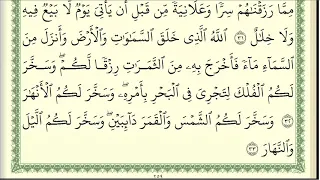 مِمَّا رَزَقْنَٰهُمْ سِرًّا وَعَلَانِيَةً مِّن قَبْلِ أَن يَأْتِىَ يَوْمٌ لَّا بَيْعٌ فِيهِ
وَلَا خِلَٰلٌ ٣١ ٱللَّهُ ٱلَّذِى خَلَقَ ٱلسَّمَٰوَٰتِ وَٱلْأَرْضَ وَأَنزَلَ مِنَ
ٱلسَّمَآءِ مَآءً فَأَخْرَجَ بِهِۦ مِنَ ٱلثَّمَرَٰتِ رِزْقًا لَّكُمْ ۖ وَسَخَّرَ
لَكُمُ ٱلْفُلْكَ لِتَجْرِىَ فِى ٱلْبَحْرِ بِأَمْرِهِۦ ۖ وَسَخَّرَ لَكُمُ ٱلْأَنْهَٰرَ
٣٢ وَسَخَّرَ لَكُمُ ٱلشَّمْسَ وَٱلْقَمَرَ دَآئِبَيْنِ ۖ وَسَخَّرَ لَكُمُ ٱلَّيْلَ
وَٱلنَّهَارَ ٣٣
٢٥٩